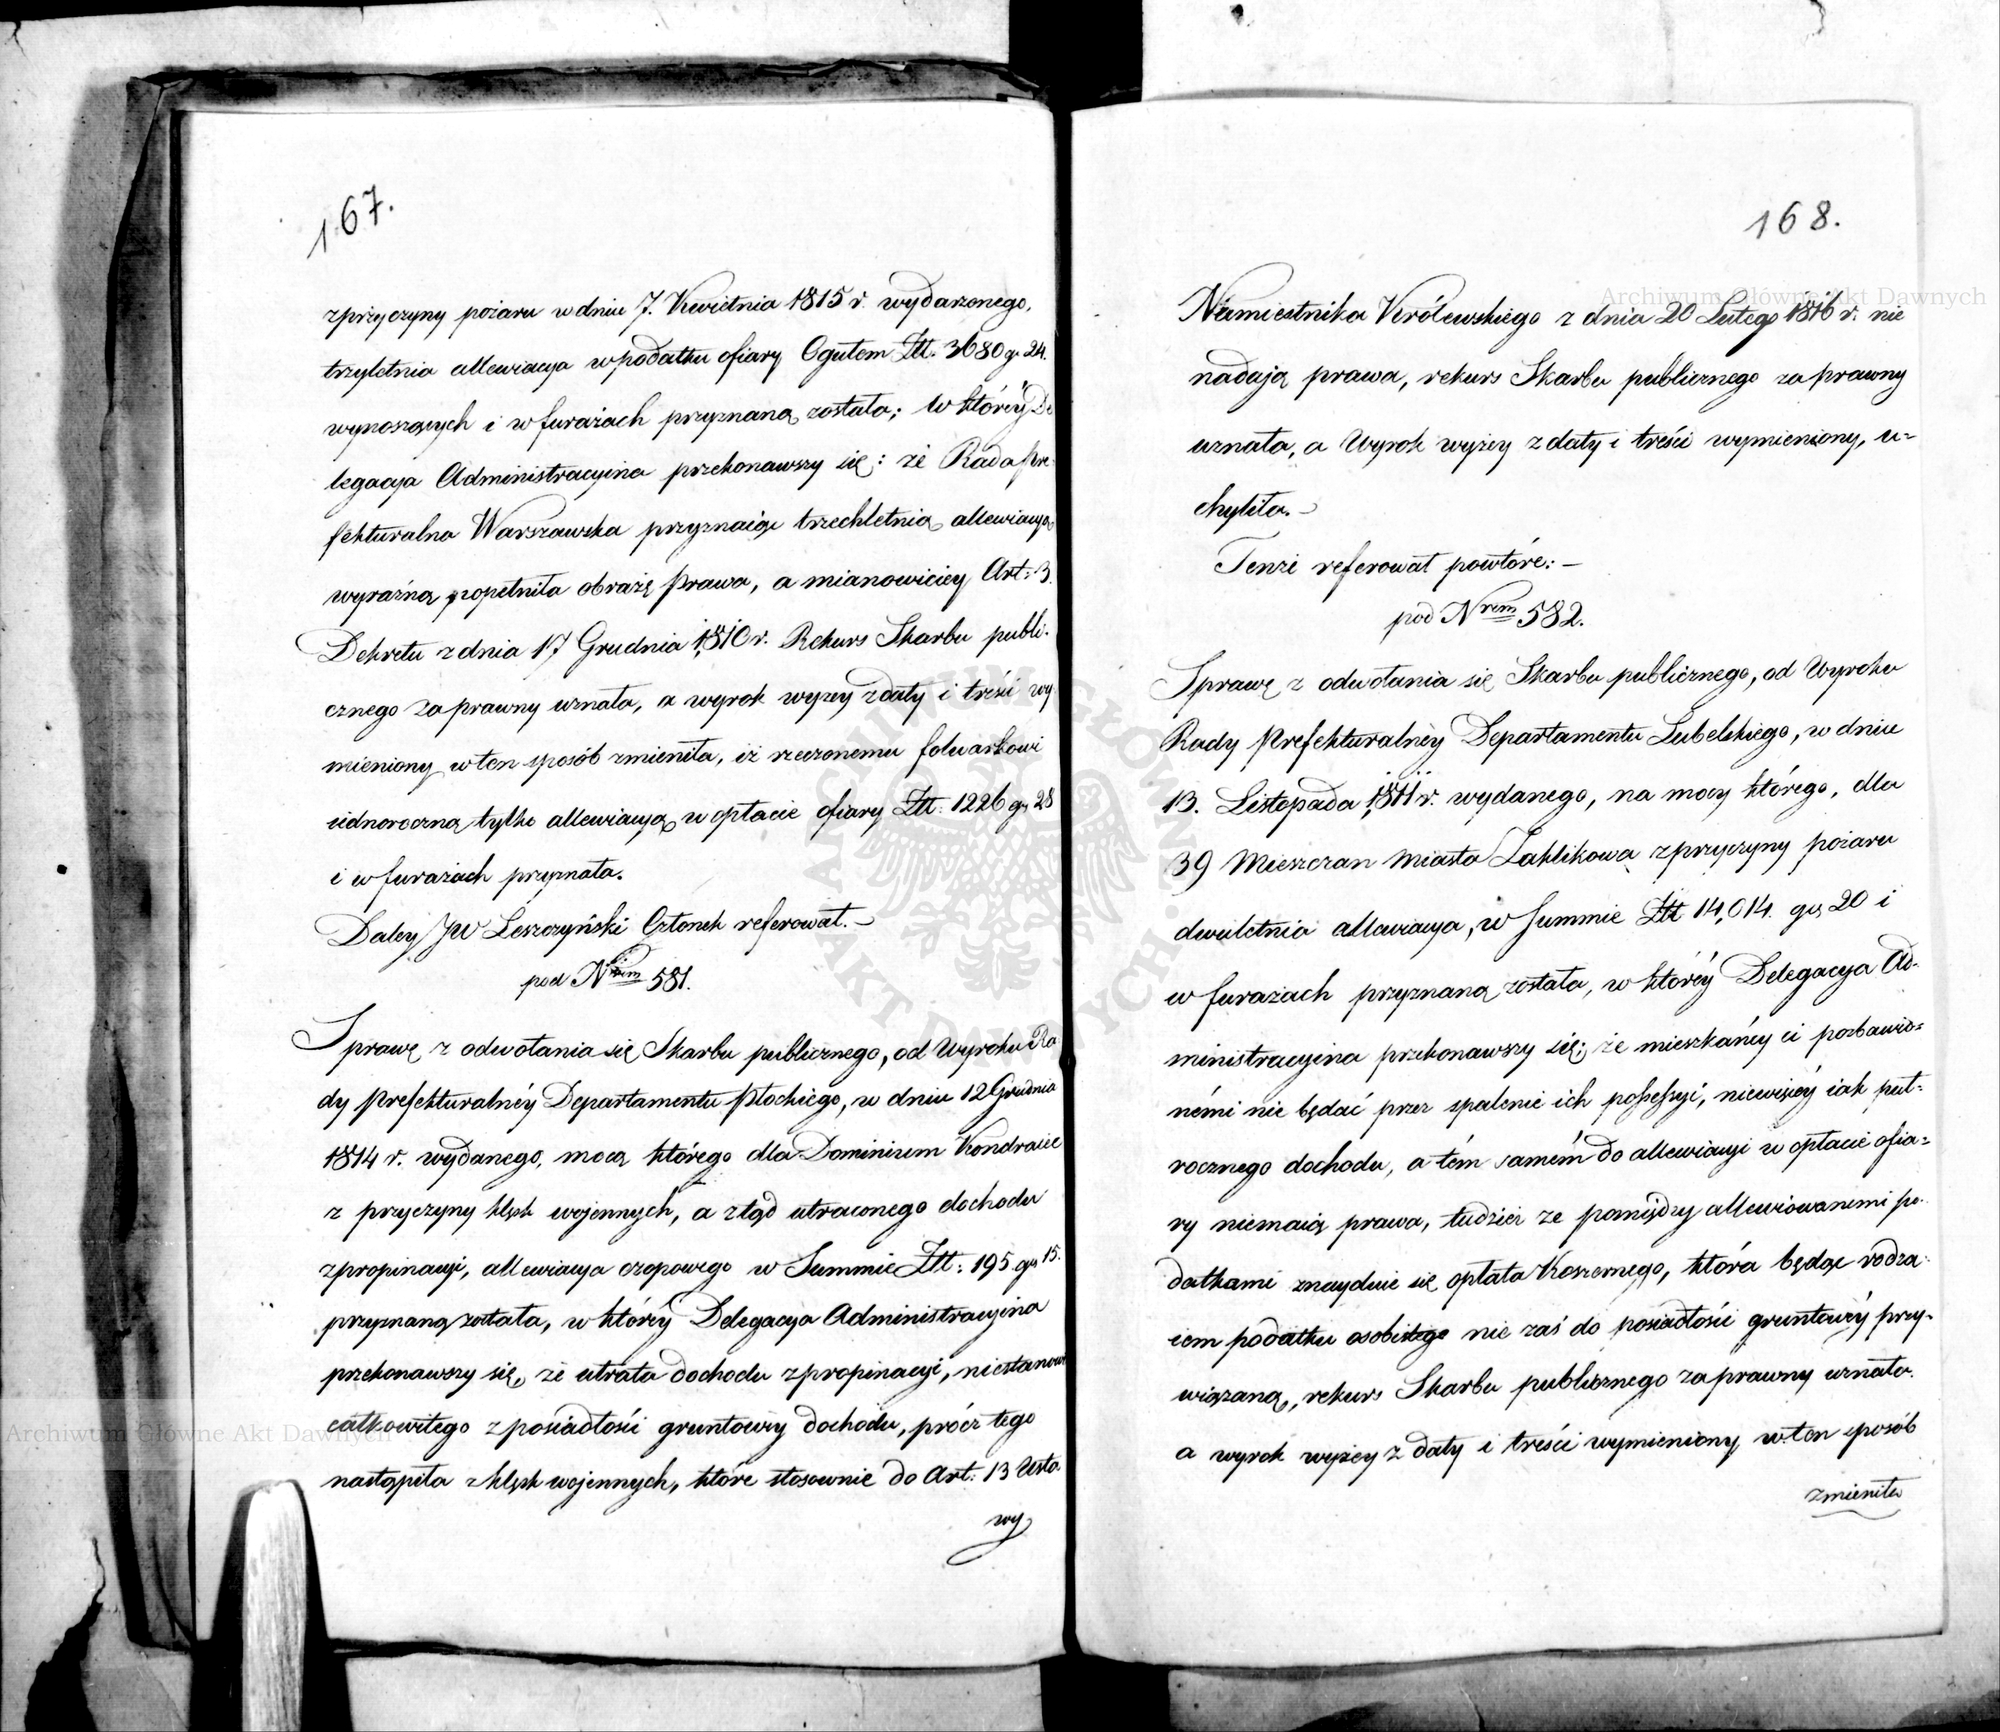 167.
z przyczyny pożaru w dniu 7. Kwietnia 1815 r. wydarzonego,
trzyletnia allewiacya w podatku ofiary Ogułem Złt. 3680 gr 24.
wynoszących i w furażach przyznaną została; w któréy De
legacya Administracyina przekonawszy się: że Rada Pre-
fekturalna Warszawska przyznaiąc trzechletnią allewiacyą
wyraźną popełniła obrazę Prawa, a mianowiciey Art: 3.
Dekretu z dnia 17 Grudnia 1810 r. Rekurs Skarbu publi-
cznego za prawny uznała, a wyrok wyzey z daty i treści wy-
mieniony w ten sposób zmieniła, iż rzeczonemu folwarkowi
iednoroczną tylko allewiacyą w opłacie ofiary Złt. 1226 gr 28
i w furażach przyznała.
Daley JW Leszczyński Członek referował. —
pod Nrem 581.
Sprawę z odwołania się Skarbu publicznego, od Wyroku Ra
dy Prefekturalnéy Departamentu Płockiego, w dniu 12 Grudnia
1814 r. wydanego, mocą którego dla Dominium Kondraiec
z przyczyny klęsk wojennych, a ztąd utraconego dochodu
z propinacyi, allewiacya czopowego w Summie Złt: 195 gr 15.
przyznaną została, w któréy Delegacya Administracyina
przekonawszy się, że utrata dochodu z propinacyi, niestanowi
całkowitego z posiadłości gruntowey dochodu, prócz tego
nastąpiła z klęsk wojennych, które stosownie do Art: 13 Usta
wy
168.
Namiestnika Królewskiego z dnia 20 Lutego 1816 r. nie
nadają prawa, rekurs Skarbu publicznego za prawny
uznała, a Wyrok wyżey z daty i treści wymieniony, u-
chyliła. —
Tenże referował powtóre: —
pod Nrem 582.
Sprawę z odwołania się Skarbu publicznego, od Wyroku
Rady Prefekturalnéy Departamentu Lubelskiego, w dniu
13. Listopada 1811 r. wydanego, na mocy którego, dla
39 Mieszczan Miasta Zaklikowa z przyczyny pożaru
dwuletnia allewiacya, w Summie Złt 14,014. gr 20 i
w furażach przyznaną została, w któréy Delegacya Ad-
ministracyina przekonawszy się; że mieszkańcy ci pozbawio-
némi nie będąć przez spalenie ich possessyi, niewięcéy iak puł-
rocznego dochodu, a tém samém do allewiacyi w opłacie ofia-
ry niemaią prawa, tudzież ze pomiędzy allewiowanemi po-
datkami znayduie się opłata Koszernego, która będąc rodza-
iem podatku osobistego nie zaś do posiadłości gruntowéy przy-
wiązaną, rekurs Skarbu publicznego za prawny uznała.
a wyrok wyżey z daty i treści wymieniony w ten sposób
zmieniła
Archiwum Główne Akt Dawnych
Archiwum Główne Akt Dawnych
ARCHIWUM GŁÓWNE AKT DAWNYCH